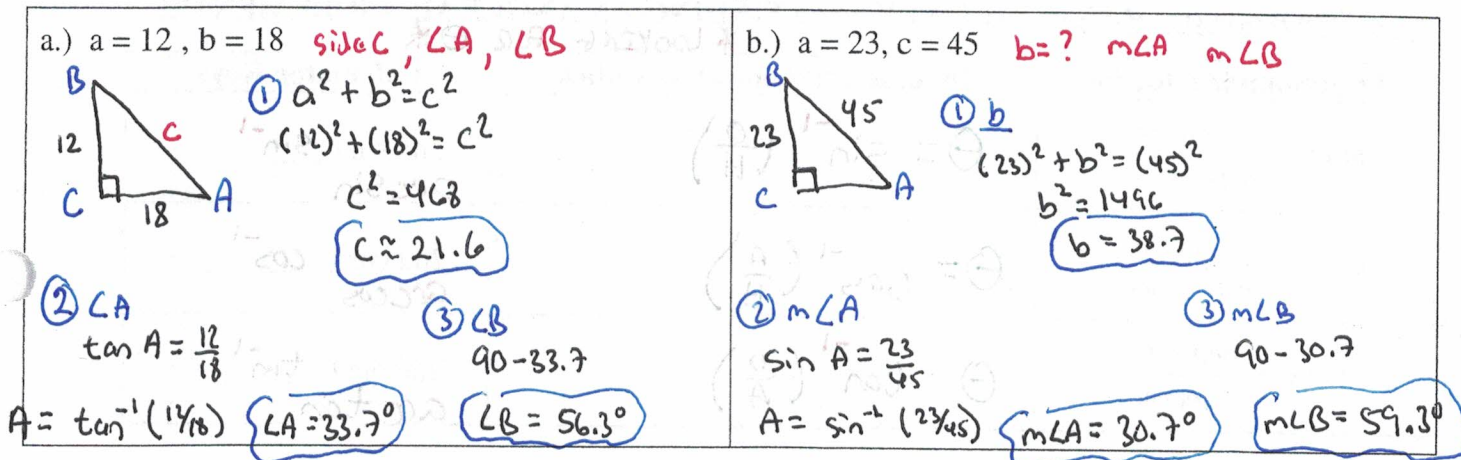 a.) a = 12 , b = 18 side c, ∠A, ∠B
B
12
c
C
18
A
① a² + b² = c²
(12)² + (18)² = c²
c² = 468
c ≈ 21.6
② ∠A
tan A = 12/18
A = tan⁻¹ (12/18) ∠A = 33.7°
③ ∠B
90 - 33.7
∠B = 56.3°
b.) a = 23, c = 45 b = ? m∠A m∠B
B
45
23
C
A
① b
(23)² + b² = (45)²
b² = 1496
b = 38.7
② m∠A
sin A = 23/45
A = sin⁻¹ (23/45) m∠A = 30.7°
③ m∠B
90 - 30.7
m∠B = 59.3°